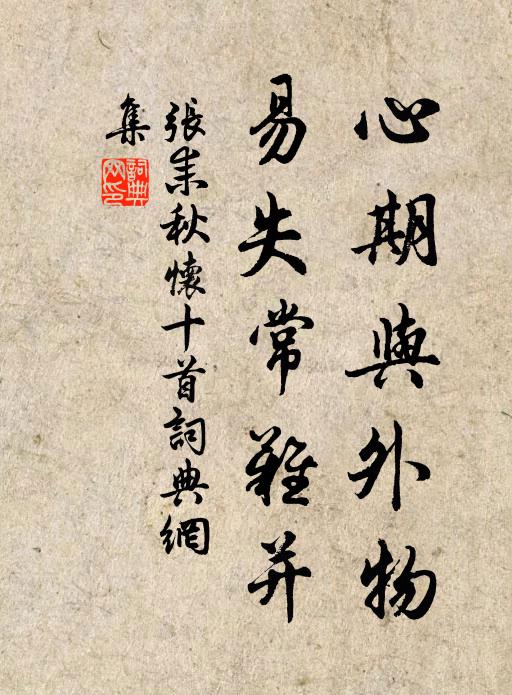 心期與外物
易失常難并
張耒秋懷十首詞典網
集
詞典網印